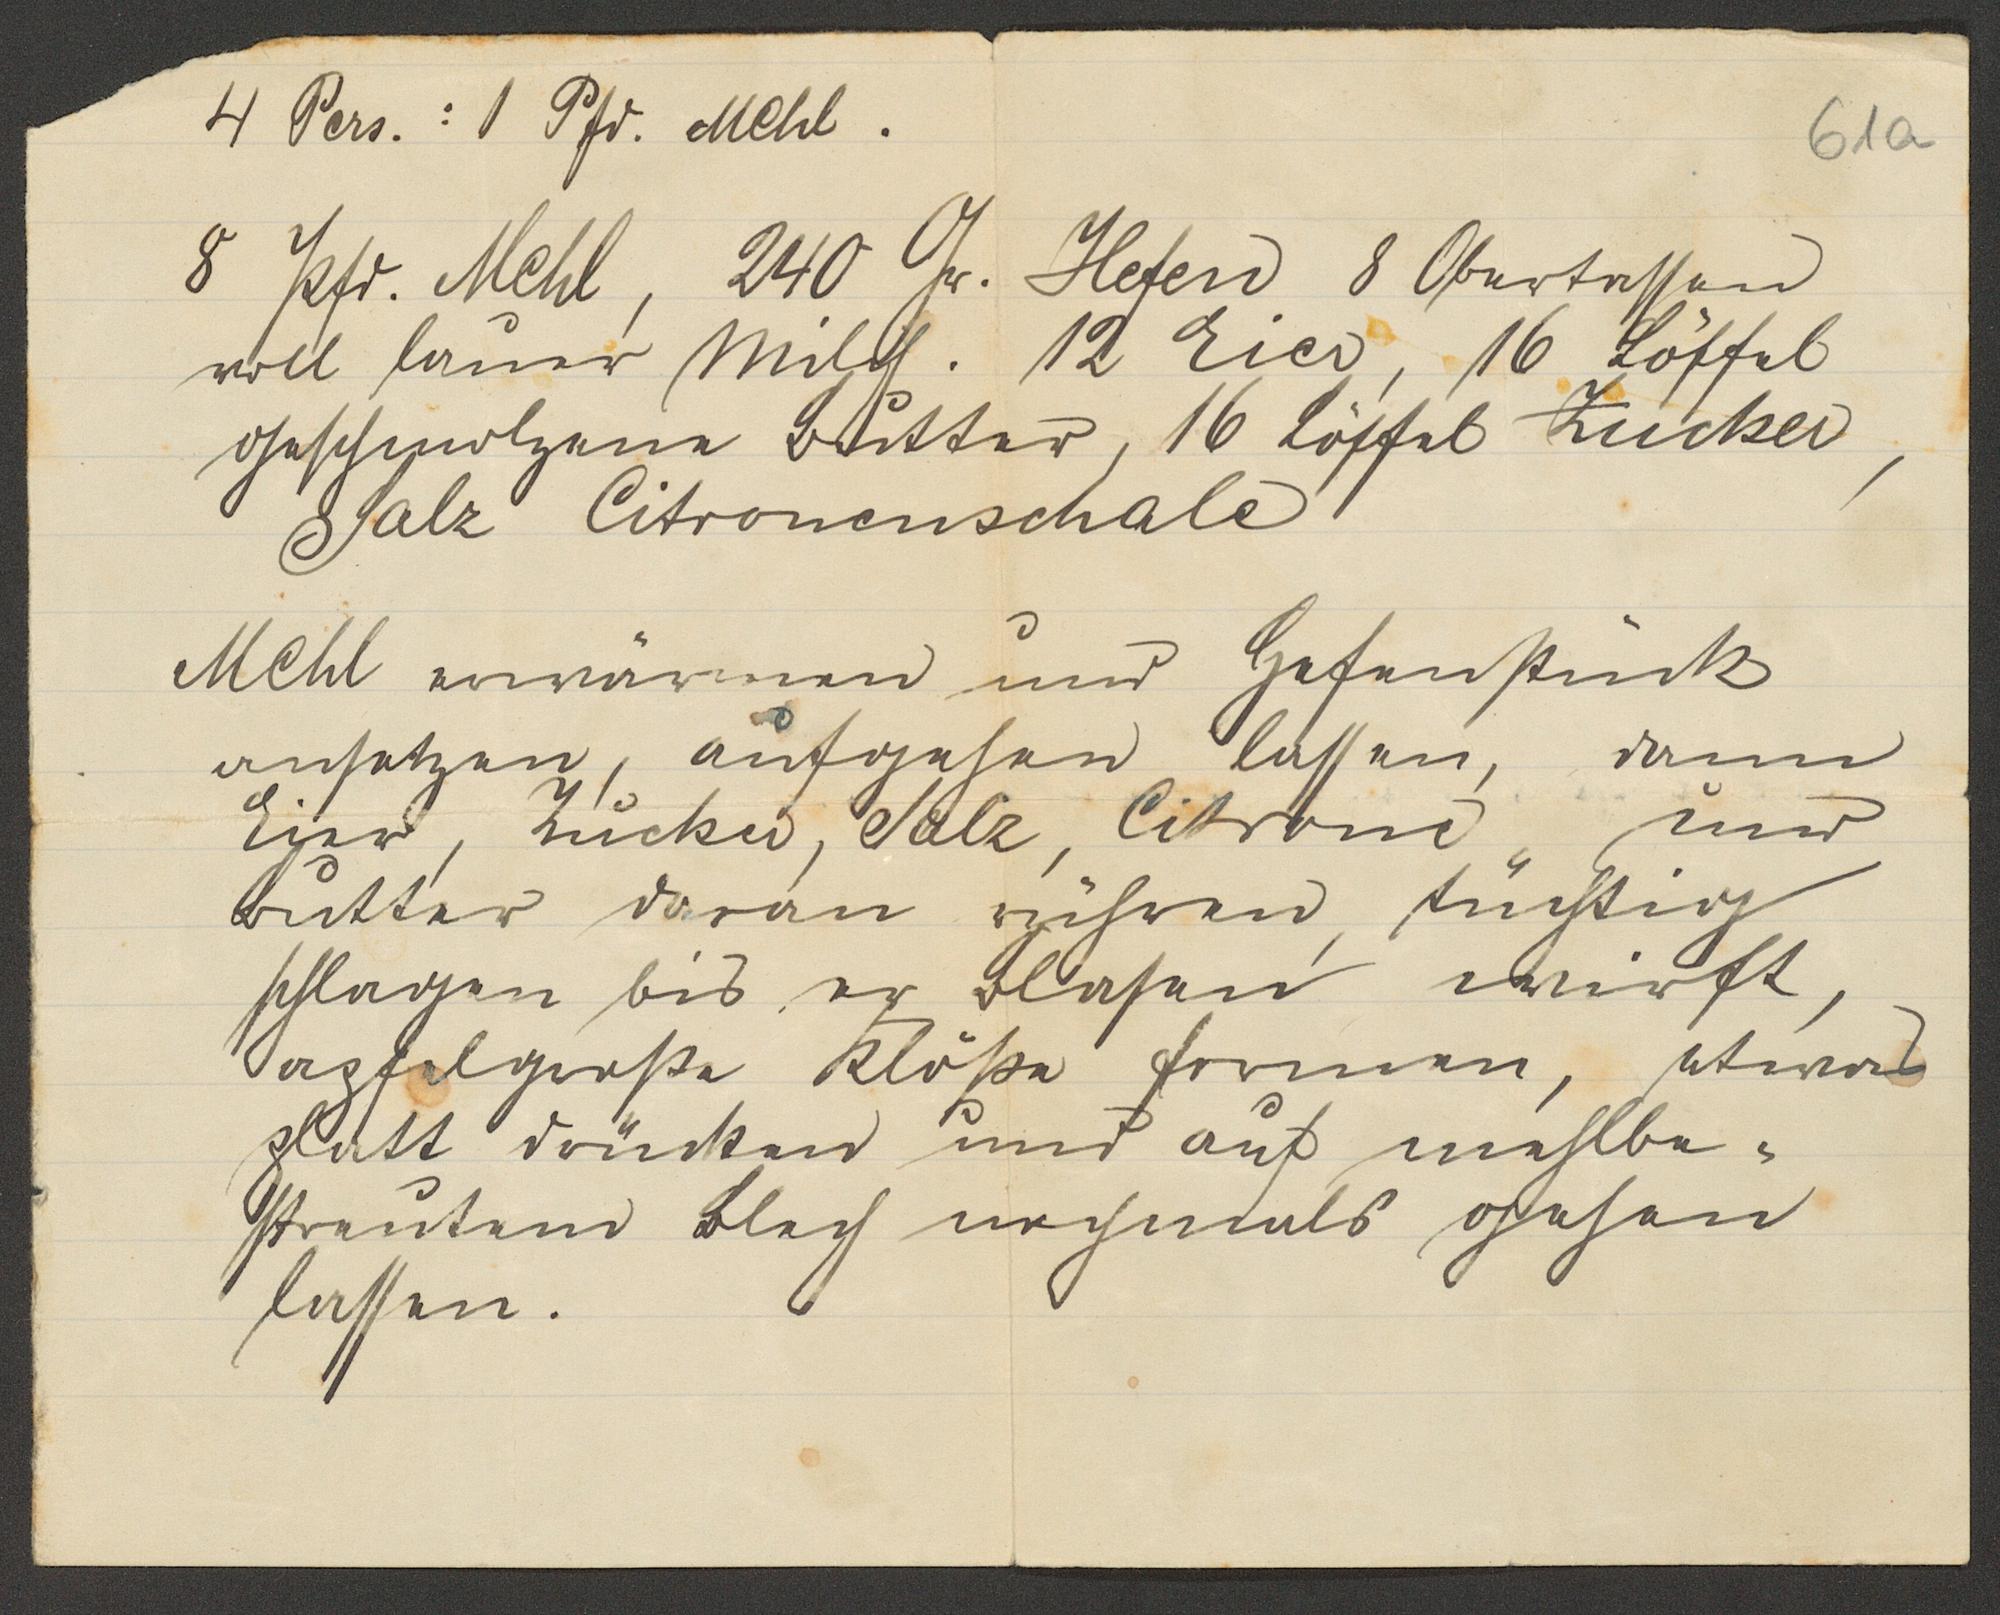 4 Pers. : 1 Pfd. Mehl .
61a
8 Pfd. Mehl, 240 Gr. Hefen 8 Obertassen
voll lauer Milch. 12 Eier, 16 Löffel
geschmolzene Butter, 16 Löffel Zucker,
Salz Citronenschale
Mehl erwärmen und Hefenstück
ansetzen, aufgehen lassen, dann
Eier, Zucker, Salz, Citrone und
Butter daran rühren, tüchtig
schlagen bis er Blasen wirft,
apfelgroße Klöße formen, etwas
platt drücken und auf mehlbe-
streutem Blech nochmals gehen
lassen.